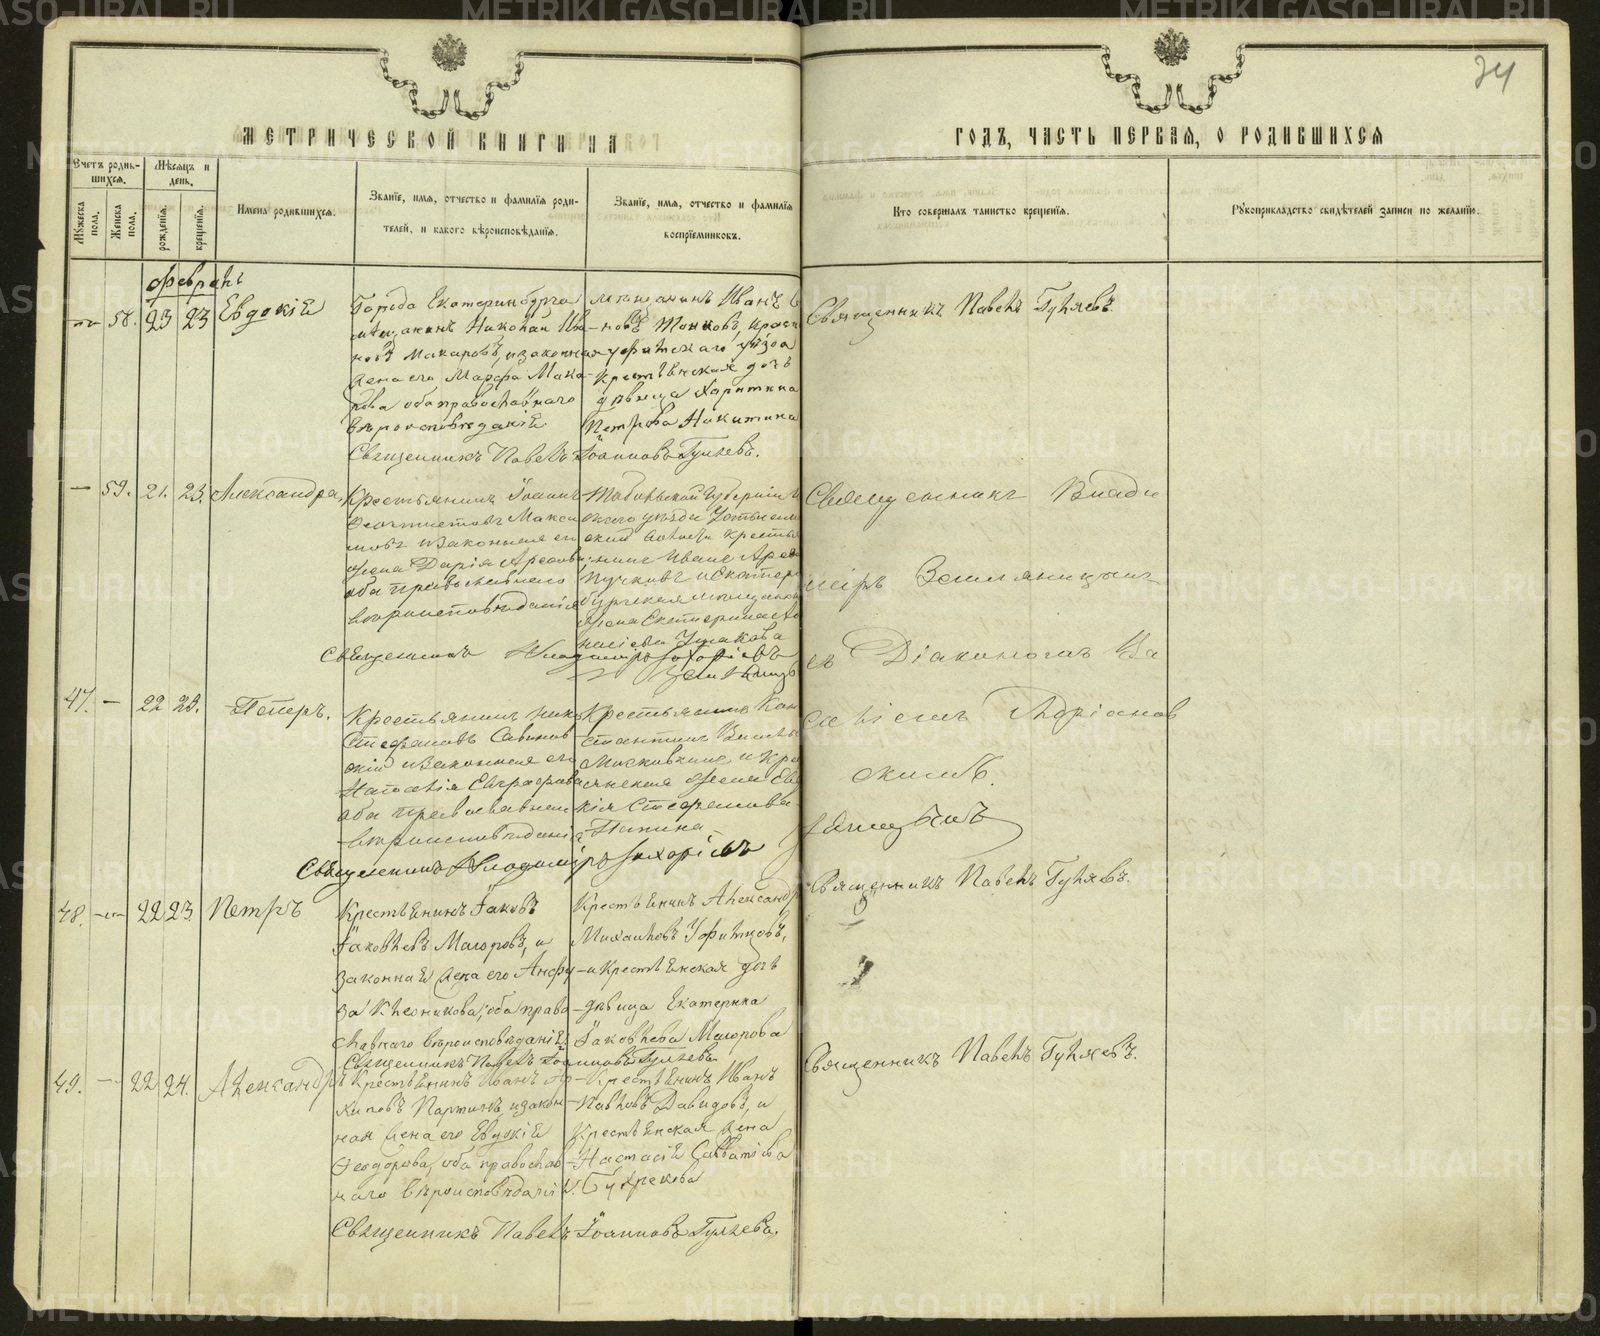 34
МЕТРИЧЕСКОЙ КНИГИ НА
ГОДЪ, ЧАСТЬ ПЕРВАЯ, О РОДИВШИХСЯ
Счетъ родив-
шихся.
Мѣсяцъ и
день.
Мужеска
пола.
Женска
пола.
рожденія.
крещенія.
Имена родившихся.
Званіе, имя, отчество и фамилія роди-
телей, и какого вѣроисповѣданія.
Званіе, имя, отчество и фамилія
воспріемниковъ.
Кто совершалъ таинство крещенія.
Рукоприкладство свидѣтелей записи по желанію.
Февраль
58. 23 23 Евдокія
Города Екатеринбурга
мѣщанинъ Николай Ива-
новъ Макаровъ, и законная
жена его Марфа Мака-
рова оба православнаго
вѣроисповѣданія
мѣщанинъ Иванъ
новъ Тонковъ,
уфимскаго уѣзда
крестьянская дочь
дѣвица Харитина
Петрова Никитина
Священникъ Павелъ Іоанновъ Гуляевъ.
Священникъ Павелъ Гуляевъ.
59. 21. 23. Александра,
Крестьянинъ Іоаннъ
Феоктистовъ Макси
мовъ и законная его
жена Дарія
оба православнаго
вѣроисповѣданія
Тобольской Губерніи
уѣзда
волости крестья
нинъ Иванъ
Пучковъ и Екатерин
бургская мѣщанская
жена Екатерина
Ушакова
Священникъ Владиміръ Захаріевъ
Земляницынъ
Священникъ Влади
міръ Земляницынъ
съ Діакономъ Ва
силіемъ Адріанов
скимъ
47. — 22 23. Петеръ.
Крестьянинъ
Стефановъ Савинов
скій и законная его
Наталія Евграфова
оба православнаго
вѣроисповѣданія
Крестьянинъ Кон
стантинъ
Московкинъ и кре
стьянская жена Евдо
кія Стефанова
Папина
Священникъ Владиміръ Захаріевъ
48. 22 23. Петръ
Крестьянинъ Іаковъ
Іаковлевъ Маюровъ, и
законная жена его Анфу-
за Клеоникова, оба право-
славнаго вѣроисповѣданія;
Крестьянинъ Александръ
Михаиловъ Уфимцовъ,
и крестьянская дочь
дѣвица Екатерина
Іаковлева Маюрова
Священникъ Павелъ Іоанновъ Гуляевъ
Священникъ Павелъ Гуляевъ.
49. 22 24. Александръ
Крестьянинъ Иванъ Ар-
хиповъ Партинъ, и закон-
ная жена его Евдокія
Феодорова, оба православ-
наго вѣроисповѣданія.
Крестьянинъ Иванъ
Павловъ Давидовъ, и
крестьянская жена
Настасія Савватіева
Бухрякова
Священникъ Павелъ Іоанновъ Гуляевъ.
Священникъ Павелъ Гуляевъ.
METRIKI.GASO-URAL.RU